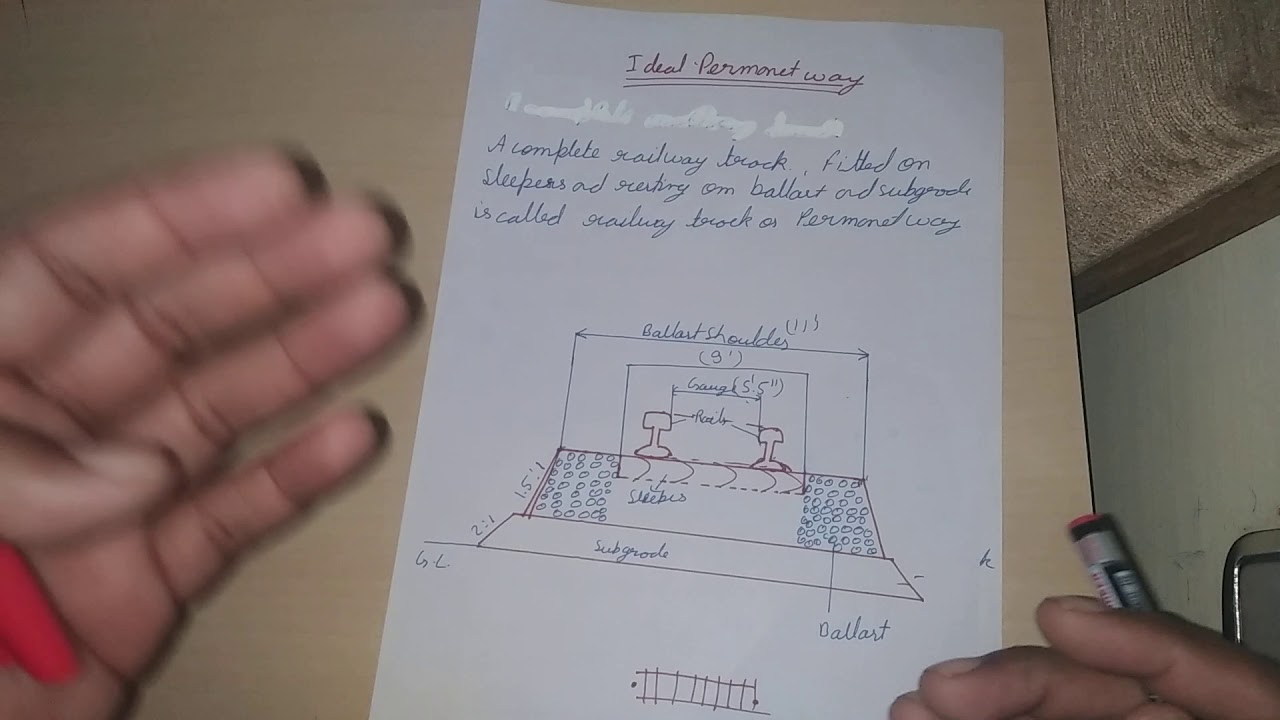 Ideal Permonet way
A complete railway track, fitted on
sleepers ad resting om ballast and subgrode
is called railway track or Permonet way
Ballast Shoulder (11')
(9')
Gauge (5'.5")
Rails
1.5:1
Sleepers
2:1
Subgrode
G.L.
Ballast